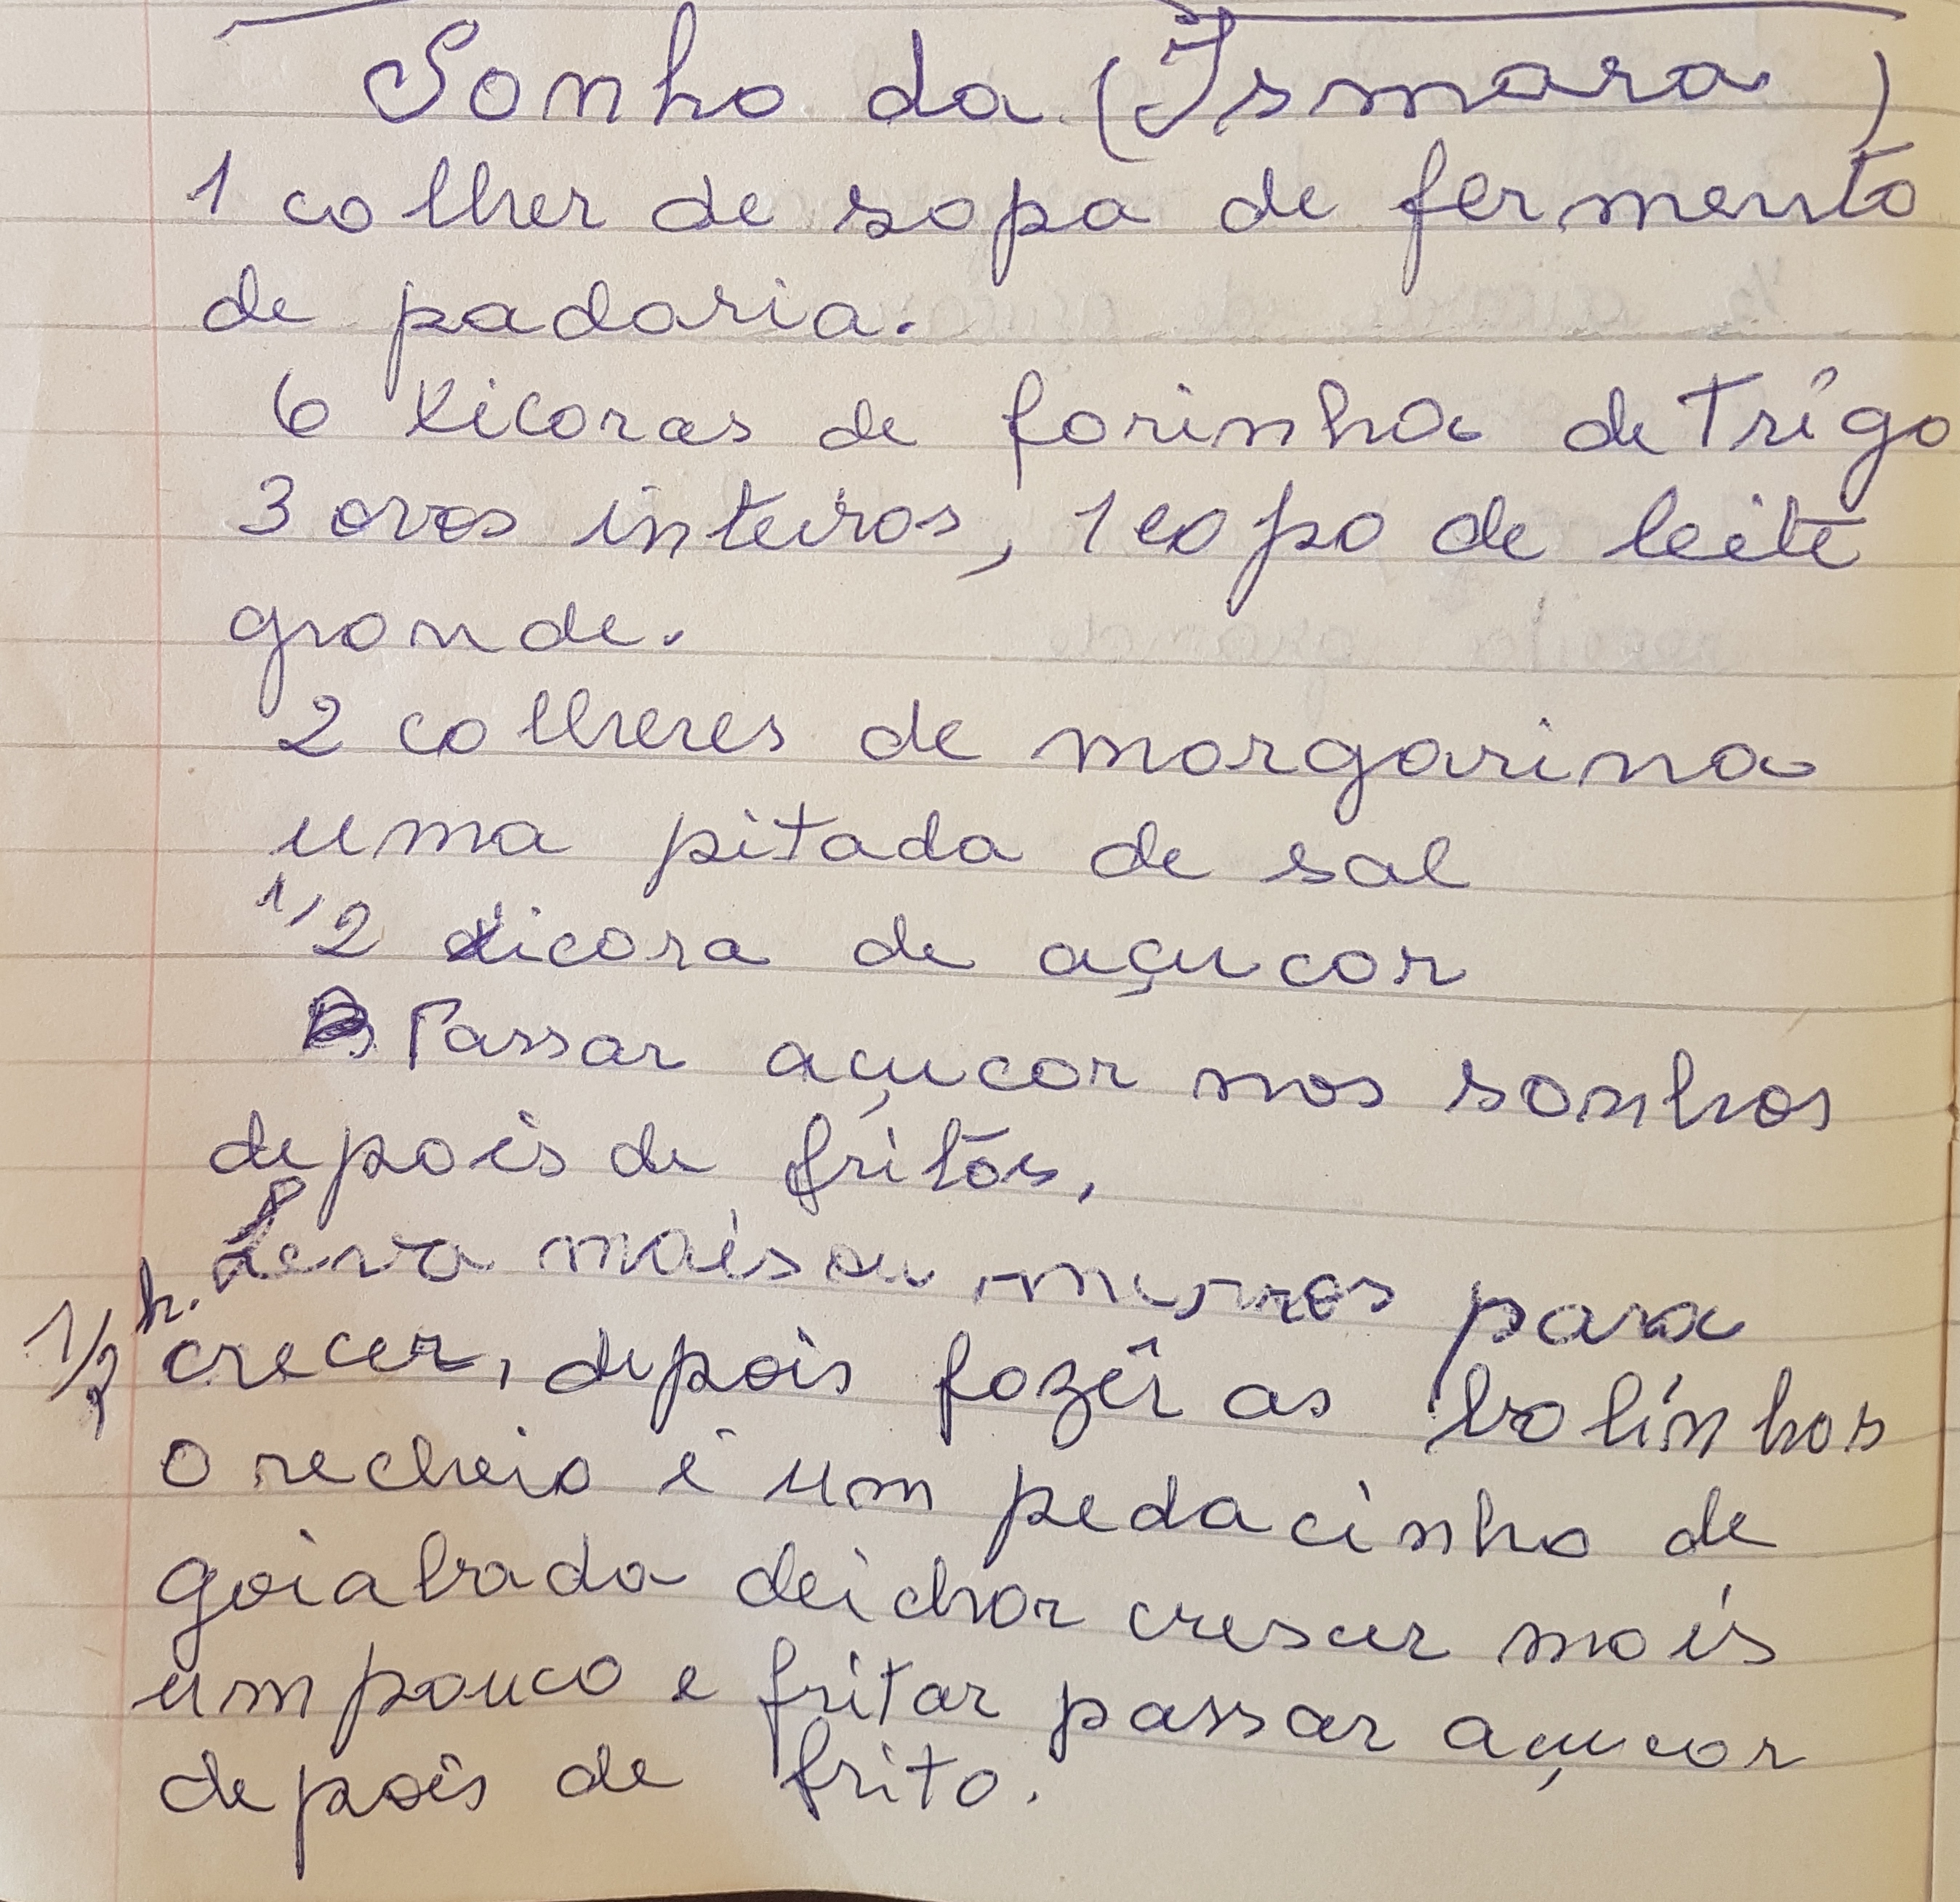 Sonho da (Ismara)
1 colher de sopa de fermento
de padaria.
6 xicaras de farinha de Trigo
3 ovos inteiros, 1 copo de leite
grande.
2 colheres de margarina
uma pitada de sal
1/2 xicara de açucar
Passar açucar nos sonhos
depois de fritos,
Leva mais ou menos para
1/2 h. crecer, depois fazer as bolinhos
o recheio é um pedacinho de
goiabada deichar creser mais
um pouco e fritar passar açucar
depois de frito.